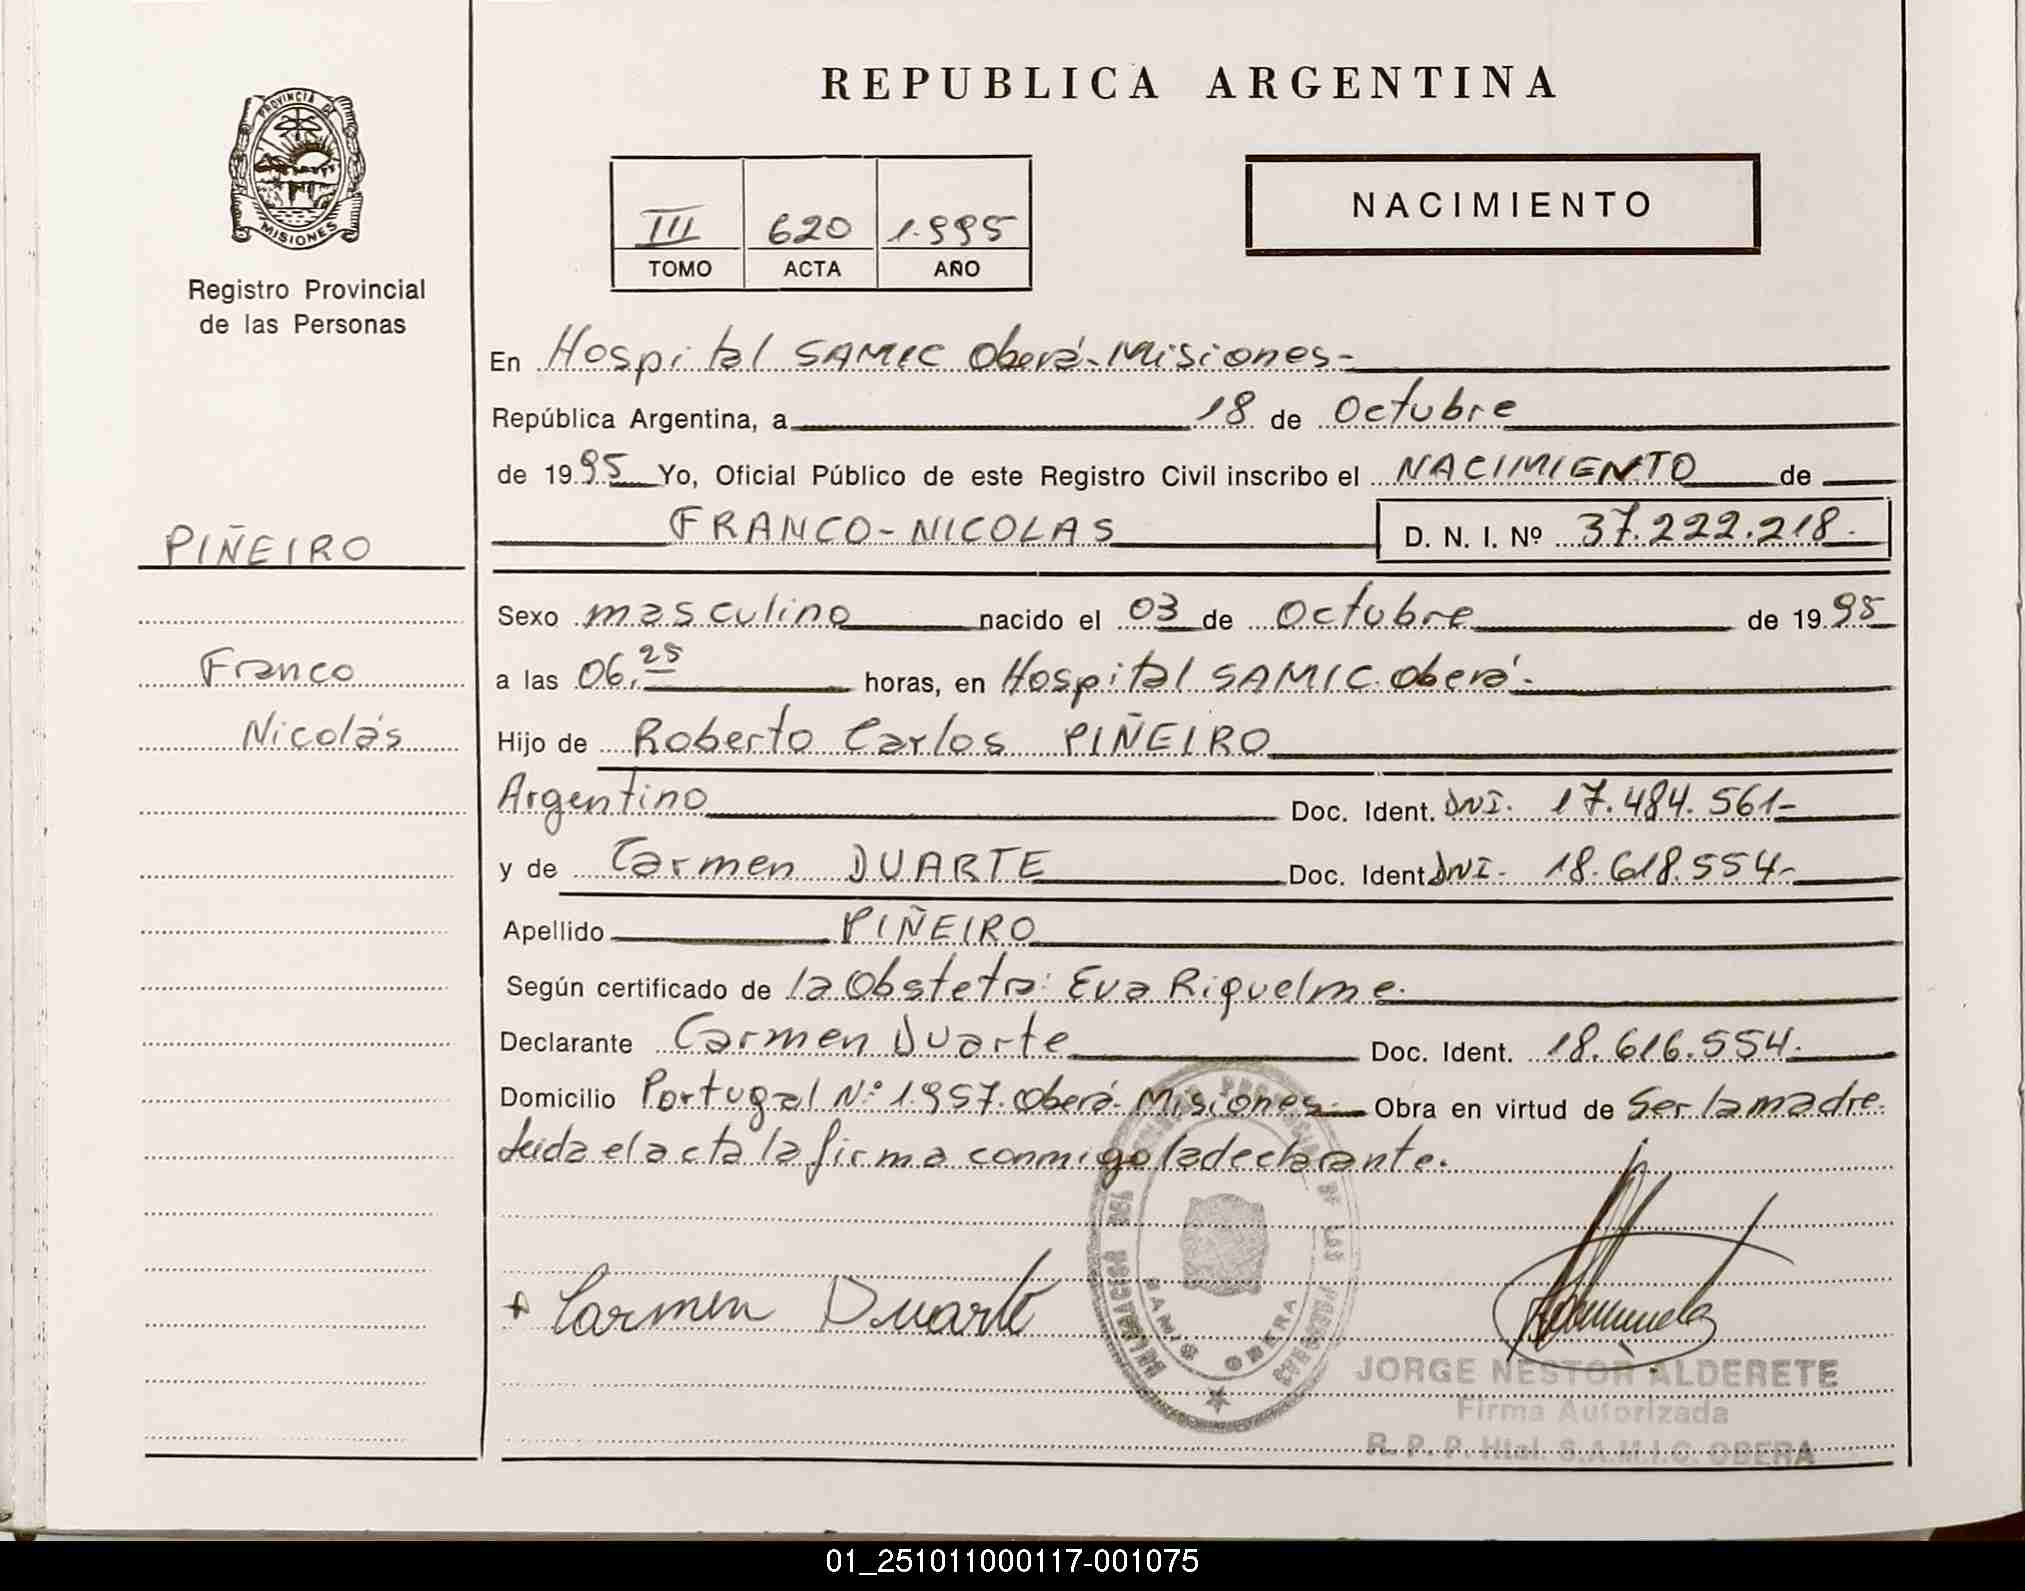 REPUBLICA ARGENTINA
PROVINCIA DE
MISIONES
Registro Provincial
de las Personas
III 620 1.995
TOMO ACTA AÑO
NACIMIENTO
En Hospital SAMIC Oberá-Misiones-
República Argentina, a 18 de Octubre
de 1995 Yo, Oficial Público de este Registro Civil inscribo el NACIMIENTO de
FRANCO-NICOLAS D. N. I. Nº 37.222.218.-
PIÑEIRO
Franco
Nicolás
Sexo masculino nacido el 03 de Octubre de 1995
a las 06,25 horas, en Hospital SAMIC. Oberá-
Hijo de Roberto Carlos PIÑEIRO
Argentino Doc. Ident. DNI. 17.484.561-
y de Carmen DUARTE Doc. Ident. DNI. 18.618.554-
Apellido PIÑEIRO
Según certificado de la Obstetra: Eva Riquelme.
Declarante Carmen Duarte Doc. Ident. 18.616.554.-
Domicilio Portugal Nº 1.957. Oberá-Misiones- Obra en virtud de Ser la madre.
Leida el acta la firma conmigo la declarante.
Carmen Duarte
DELEGACION DEL REGISTRO PROVINCIAL DE LAS PERSONAS
SAMIC OBERA
JORGE NESTOR ALDERETE
Firma Autorizada
R. P. P. Htal. S.A.M.I.C. OBERA
01_251011000117-001075